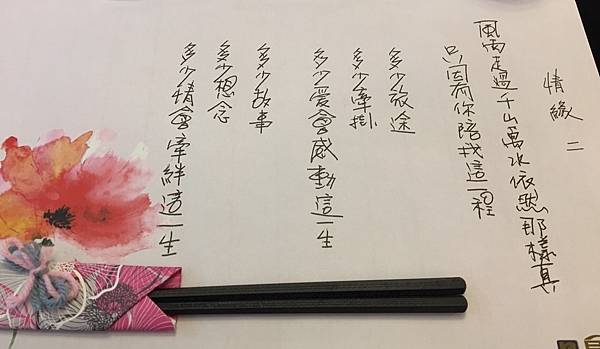 情緣 二
風雨走過千山萬水依然那樣真
只因有你陪我這一程
多少旅途
多少牽掛
多少愛會感動這一生
多少故事
多少想念
多少情會牽絆這一生